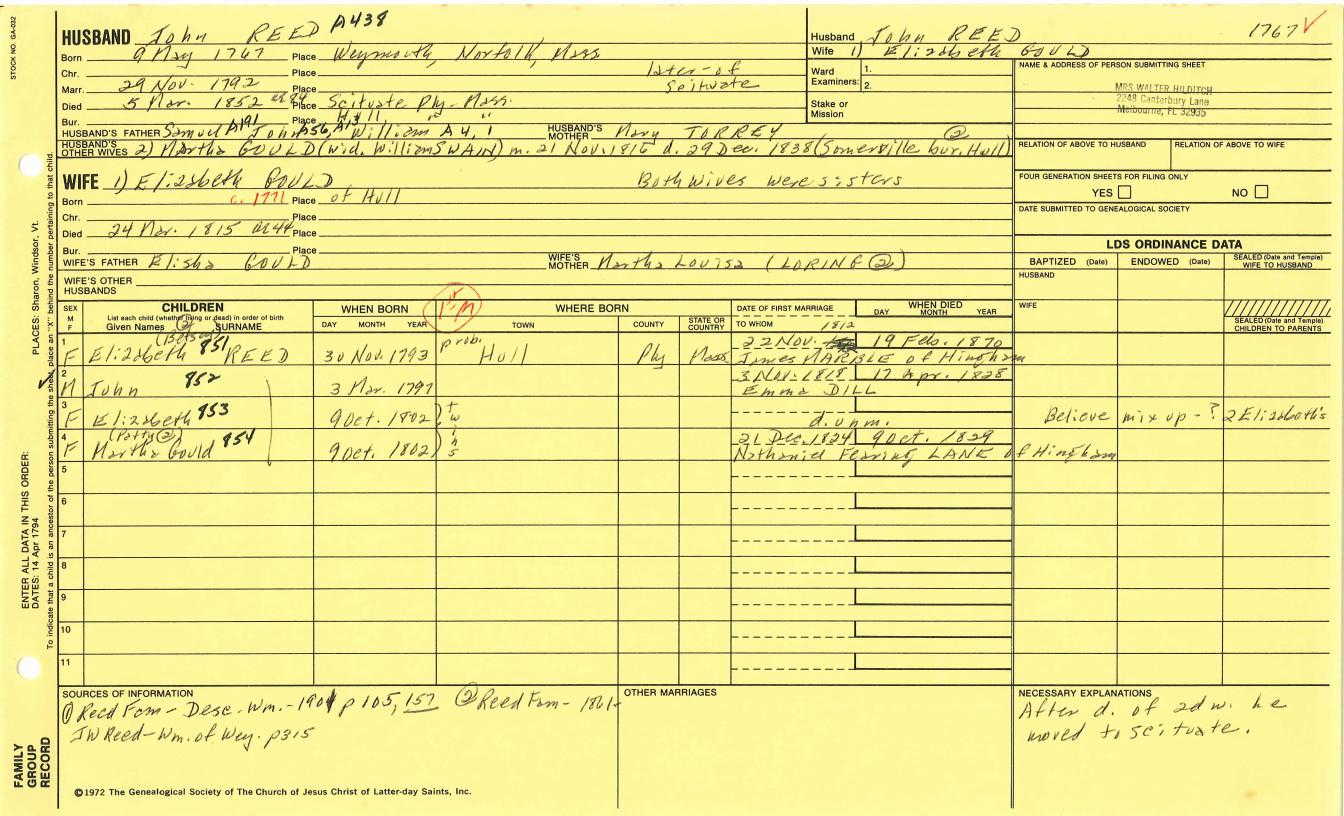 STOCK NO. GA-032
HUSBAND John REED A438
Born 9 May 1767 Place Weymouth, Norfolk, Mass
Chr. Place later of
Marr. 29 Nov. 1792 Place Scituate
Died 5 Mar. 1852 ae 84 Place Scituate Ply- Mass.
Bur. Place Hull, " "
HUSBAND'S FATHER Samuel A191 John A56, A13, William A4, 1 HUSBAND'S MOTHER Mary TORREY
HUSBAND'S OTHER WIVES 2) Martha GOULD (wid. William SWAIN) m. 21 Nov. 1815 d. 29 Dec. 1838 (Somerville bur. Hull) ②
WIFE 1) Elizabeth GOULD Both wives were sisters
Born c. 1771 Place of Hull
Chr. Place
Died 24 Mar. 1815 ae 44 Place
Bur. Place
WIFE'S FATHER Elisha GOULD WIFE'S MOTHER Martha Louisa (LORING ②)
WIFE'S OTHER HUSBANDS
Husband John REED 1767 ✓
Wife 1) Elizabeth GOULD
Ward Examiners: 1.
2.
Stake or Mission
NAME & ADDRESS OF PERSON SUBMITTING SHEET
MRS WALTER HILDITCH
2248 Canterbury Lane
Melbourne, FL 32935
RELATION OF ABOVE TO HUSBAND RELATION OF ABOVE TO WIFE
FOUR GENERATION SHEETS FOR FILING ONLY
YES NO
DATE SUBMITTED TO GENEALOGICAL SOCIETY
LDS ORDINANCE DATA
BAPTIZED (Date) ENDOWED (Date) SEALED (Date and Temple) WIFE TO HUSBAND
HUSBAND
WIFE
SEALED (Date and Temple) CHILDREN TO PARENTS
SEX M F
CHILDREN
List each child (whether living or dead) in order of birth
Given Names SURNAME
WHEN BORN
DAY MONTH YEAR
1st m
WHERE BORN
TOWN COUNTY STATE OR COUNTRY
DATE OF FIRST MARRIAGE
TO WHOM
WHEN DIED
DAY MONTH YEAR
② (Betsey) prob. 1812
1 F Elizabeth 851 REED 30 Nov. 1793 Hull Ply Mass 22 Nov. 19 Feb. 1870
James MARBLE of Hingham
2 M John 852 3 Mar. 1797 3 Nov. 1818 17 Apr. 1828
Emma DILL
3 F Elizabeth 853 9 Oct. 1802 twins d. unm. Believe mix up - ? 2 Elizabeth's
4 F (Patty ②) Martha Gould 854 9 Oct. 1802 21 Dec. 1824 9 Oct. 1829
Nathaniel Fearing LANE of Hingham
5
6
7
8
9
10
11
SOURCES OF INFORMATION
① Reed Fam - Desc. Wm. - 1901 p 105, 157 ② Reed Fam - 1861-
JW Reed - Wm. of Wey. p315
OTHER MARRIAGES
NECESSARY EXPLANATIONS
After d. of 2d w. he
moved to Scituate.
©1972 The Genealogical Society of The Church of Jesus Christ of Latter-day Saints, Inc.
PLACES: Sharon, Windsor, Vt.
ENTER ALL DATA IN THIS ORDER:
DATES: 14 Apr 1794
To indicate that a child is an ancestor of the person submitting the sheet, place an "X" behind the number pertaining to that child.
FAMILY
GROUP
RECORD